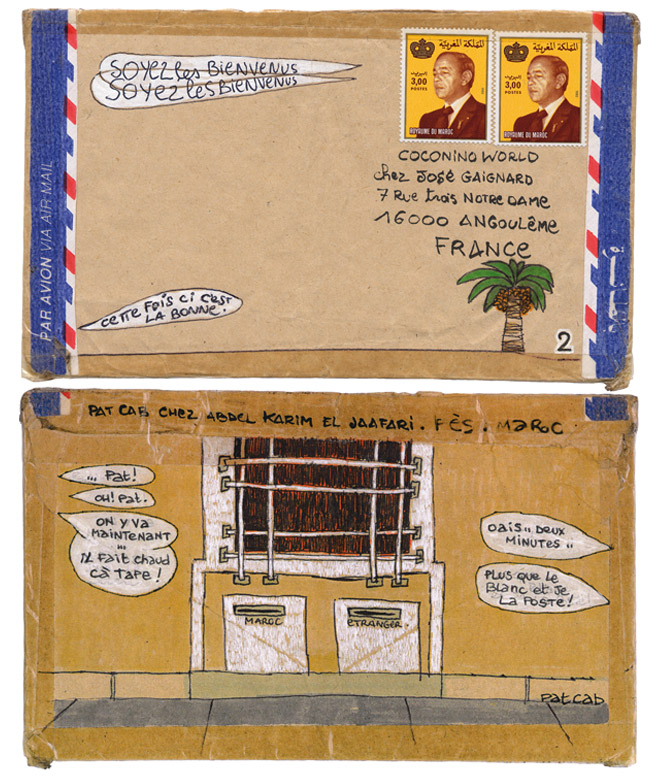 SOYEZ les BIENVENUS
SOYEZ les BIENVENUS
المملكة المغربية
3,00
POSTES
ROYAUME DU MAROC
المملكة المغربية
3,00
POSTES
ROYAUME DU MAROC
COCONINO WORLD
chez JOSÉ GAIGNARD
7 Rue trois NOTRE DAME
16000 ANGOULÊME
FRANCE
PAR AVION VIA AIR MAIL
cette Fois ci c'est
LA BONNE.
2
PAT CAB CHEZ ABDEL KARIM EL JAAFARI. FÈS. MAROC
... Pat!
OH! Pat.
ON Y VA
MAINTENANT
...
iL FAIT CHAUD
CÀ TAPE !
OAIS.. DEUX
MINUTES ..
PLUS QUE LE
BLANC et JE
LA POSTE!
MAROC
ETRANGER
PATCAB